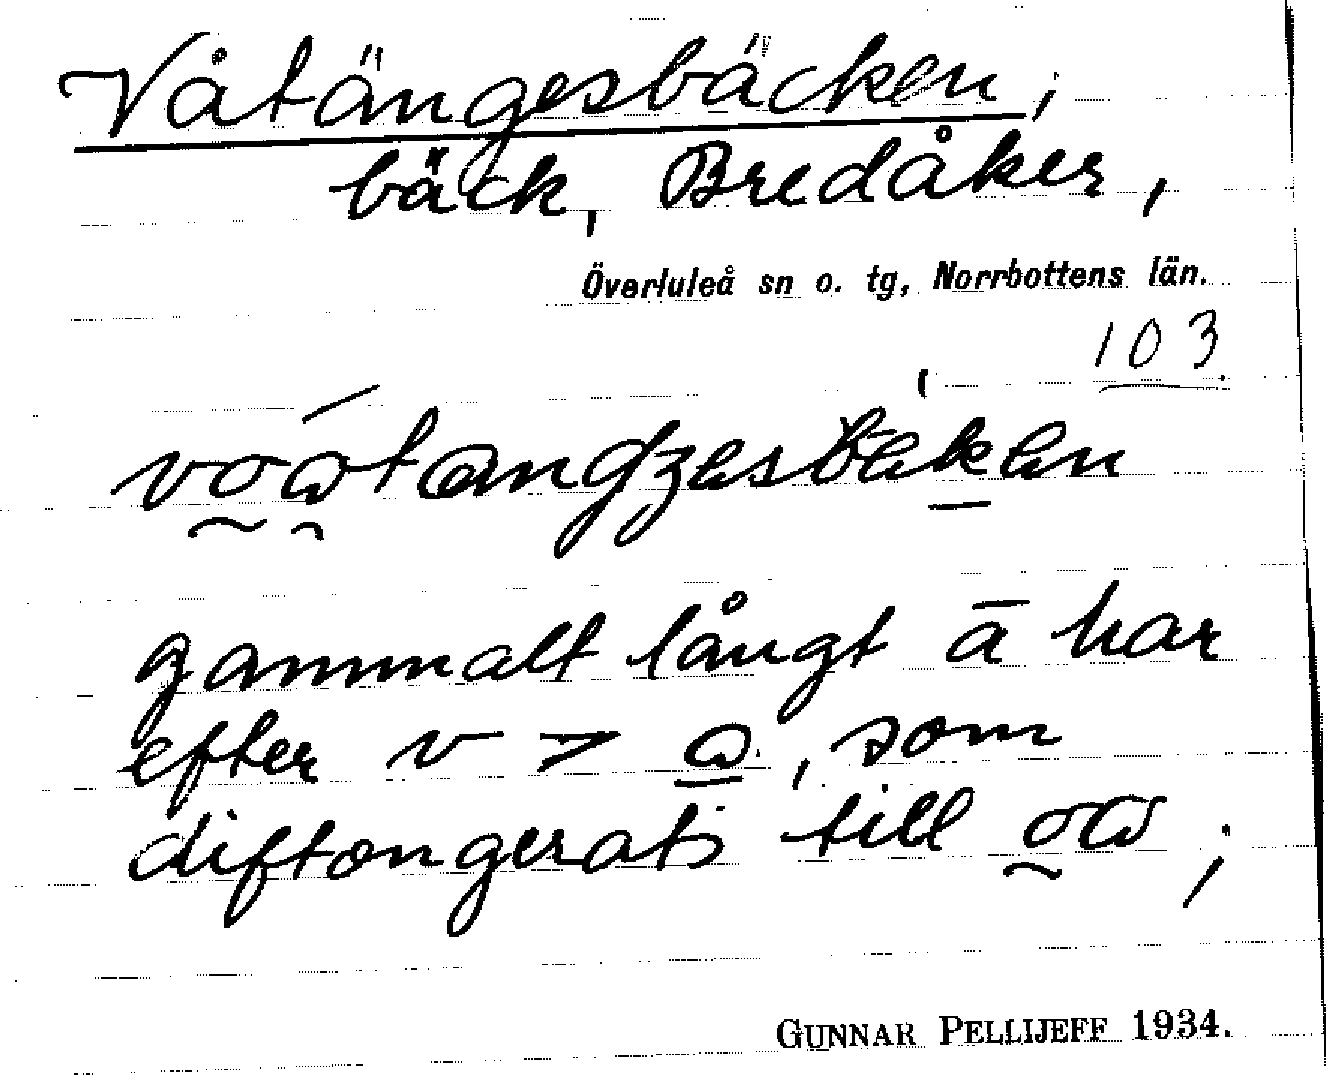 Våtängesbäcken;
bäck, Bredåker,
Överluleå sn o. tg, Norrbottens län.
103
gammalt långt ā har
efter v > ɷ, som
diftongerats till oɷ;
GUNNAR PELLIJEFF 1934.